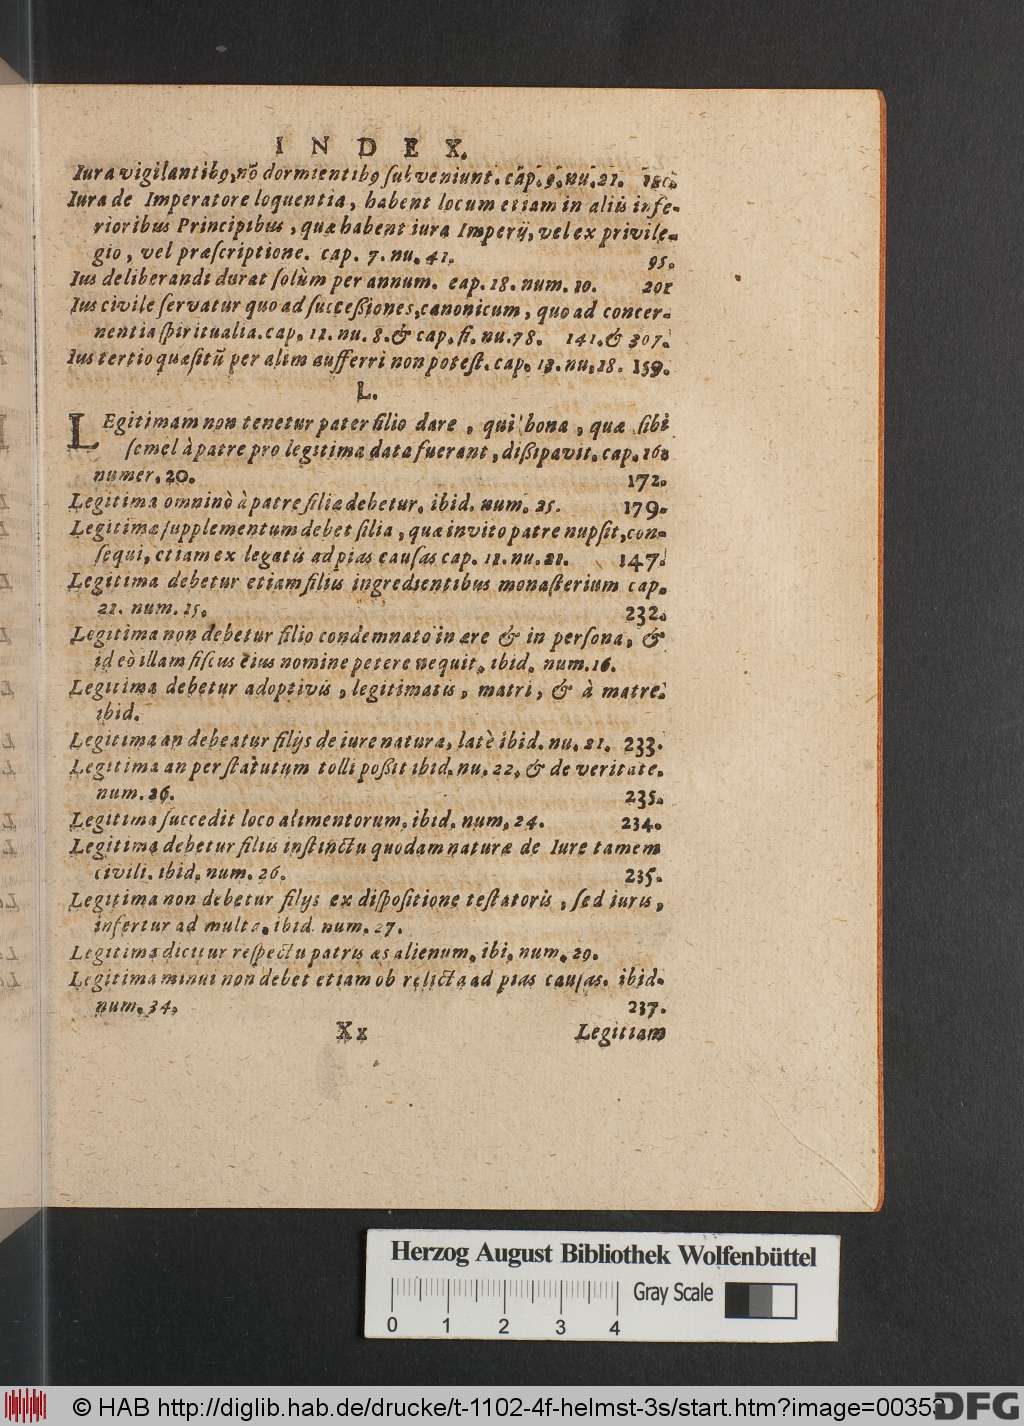 INDEX.
Iura vigilantibꝰ, nõ dormientibꝰ ſubveniunt. cap. 9. nu. 21.
Iura de Imperatore loquentia, habent locum etiam in aliis infe-
rioribus Principibus, quæ habent iura Imperij, vel ex privile-
gio, vel præſcriptione. cap. 7. nu. 41. 95.
Ius deliberandi durat ſolùm per annum. cap. 18. num. 10. 201
Ius civile ſervatur quo ad ſucceßiones, canonicum, quo ad concer-
nentia ſpiritualia. cap. 11. nu. 8. & cap. fi. nu. 78. 141. & 307.
Ius tertio quæſitũ per aliũ aufferri non poteſt. cap. 13. nu. 18. 159.
L.
LEgitimam non tenetur pater filio dare, qui bona, quæ ſibi
ſemel à patre pro legitima data fuerant, dißipavit. cap. 16.
numer. 20. 172.
Legitima omninò à patre filiæ debetur. ibid. num. 25. 179.
Legitimæ ſupplementum debet filia, quæ invito patre nupſit, con-
ſequi, etiam ex legatis ad pias cauſas cap. 11. nu. 21. 147.
Legitima debetur etiam filiis ingredientibus monaſterium cap.
21. num. 15. 232.
Legitima non debetur filio condemnato in ære & in perſona, &
ideò illam fiſcus eius nomine petere nequit. ibid. num. 16.
Legitima debetur adoptivis, legitimatis, matri, & à matre.
ibid.
Legitima an debeatur filijs de iure natura, latè ibid. nu. 21. 233.
Legitima an per ſtatutum tolli poßit ibid. nu. 22. & de veritate.
num. 26. 235.
Legitima ſuccedit loco alimentorum. ibid. num. 24. 234.
Legitima debetur filiis inſtinctu quodam naturæ de Iure tamem
civili. ibid. num. 26. 235.
Legitima non debetur filijs ex diſpoſitione teſtatoris, ſed iuris,
infertur ad multa. ibid. num. 27.
Legitima dicitur reſpectu patris æs alienum. ibi. num. 29.
Legitima minui non debet etiam ob relicta ad pias cauſas. ibid.
num. 34. 237.
Xx Legitiam
Herzog August Bibliothek Wolfenbüttel
Gray Scale
0 1 2 3 4
© HAB http://diglib.hab.de/drucke/t-1102-4f-helmst-3s/start.htm?image=00353
DFG